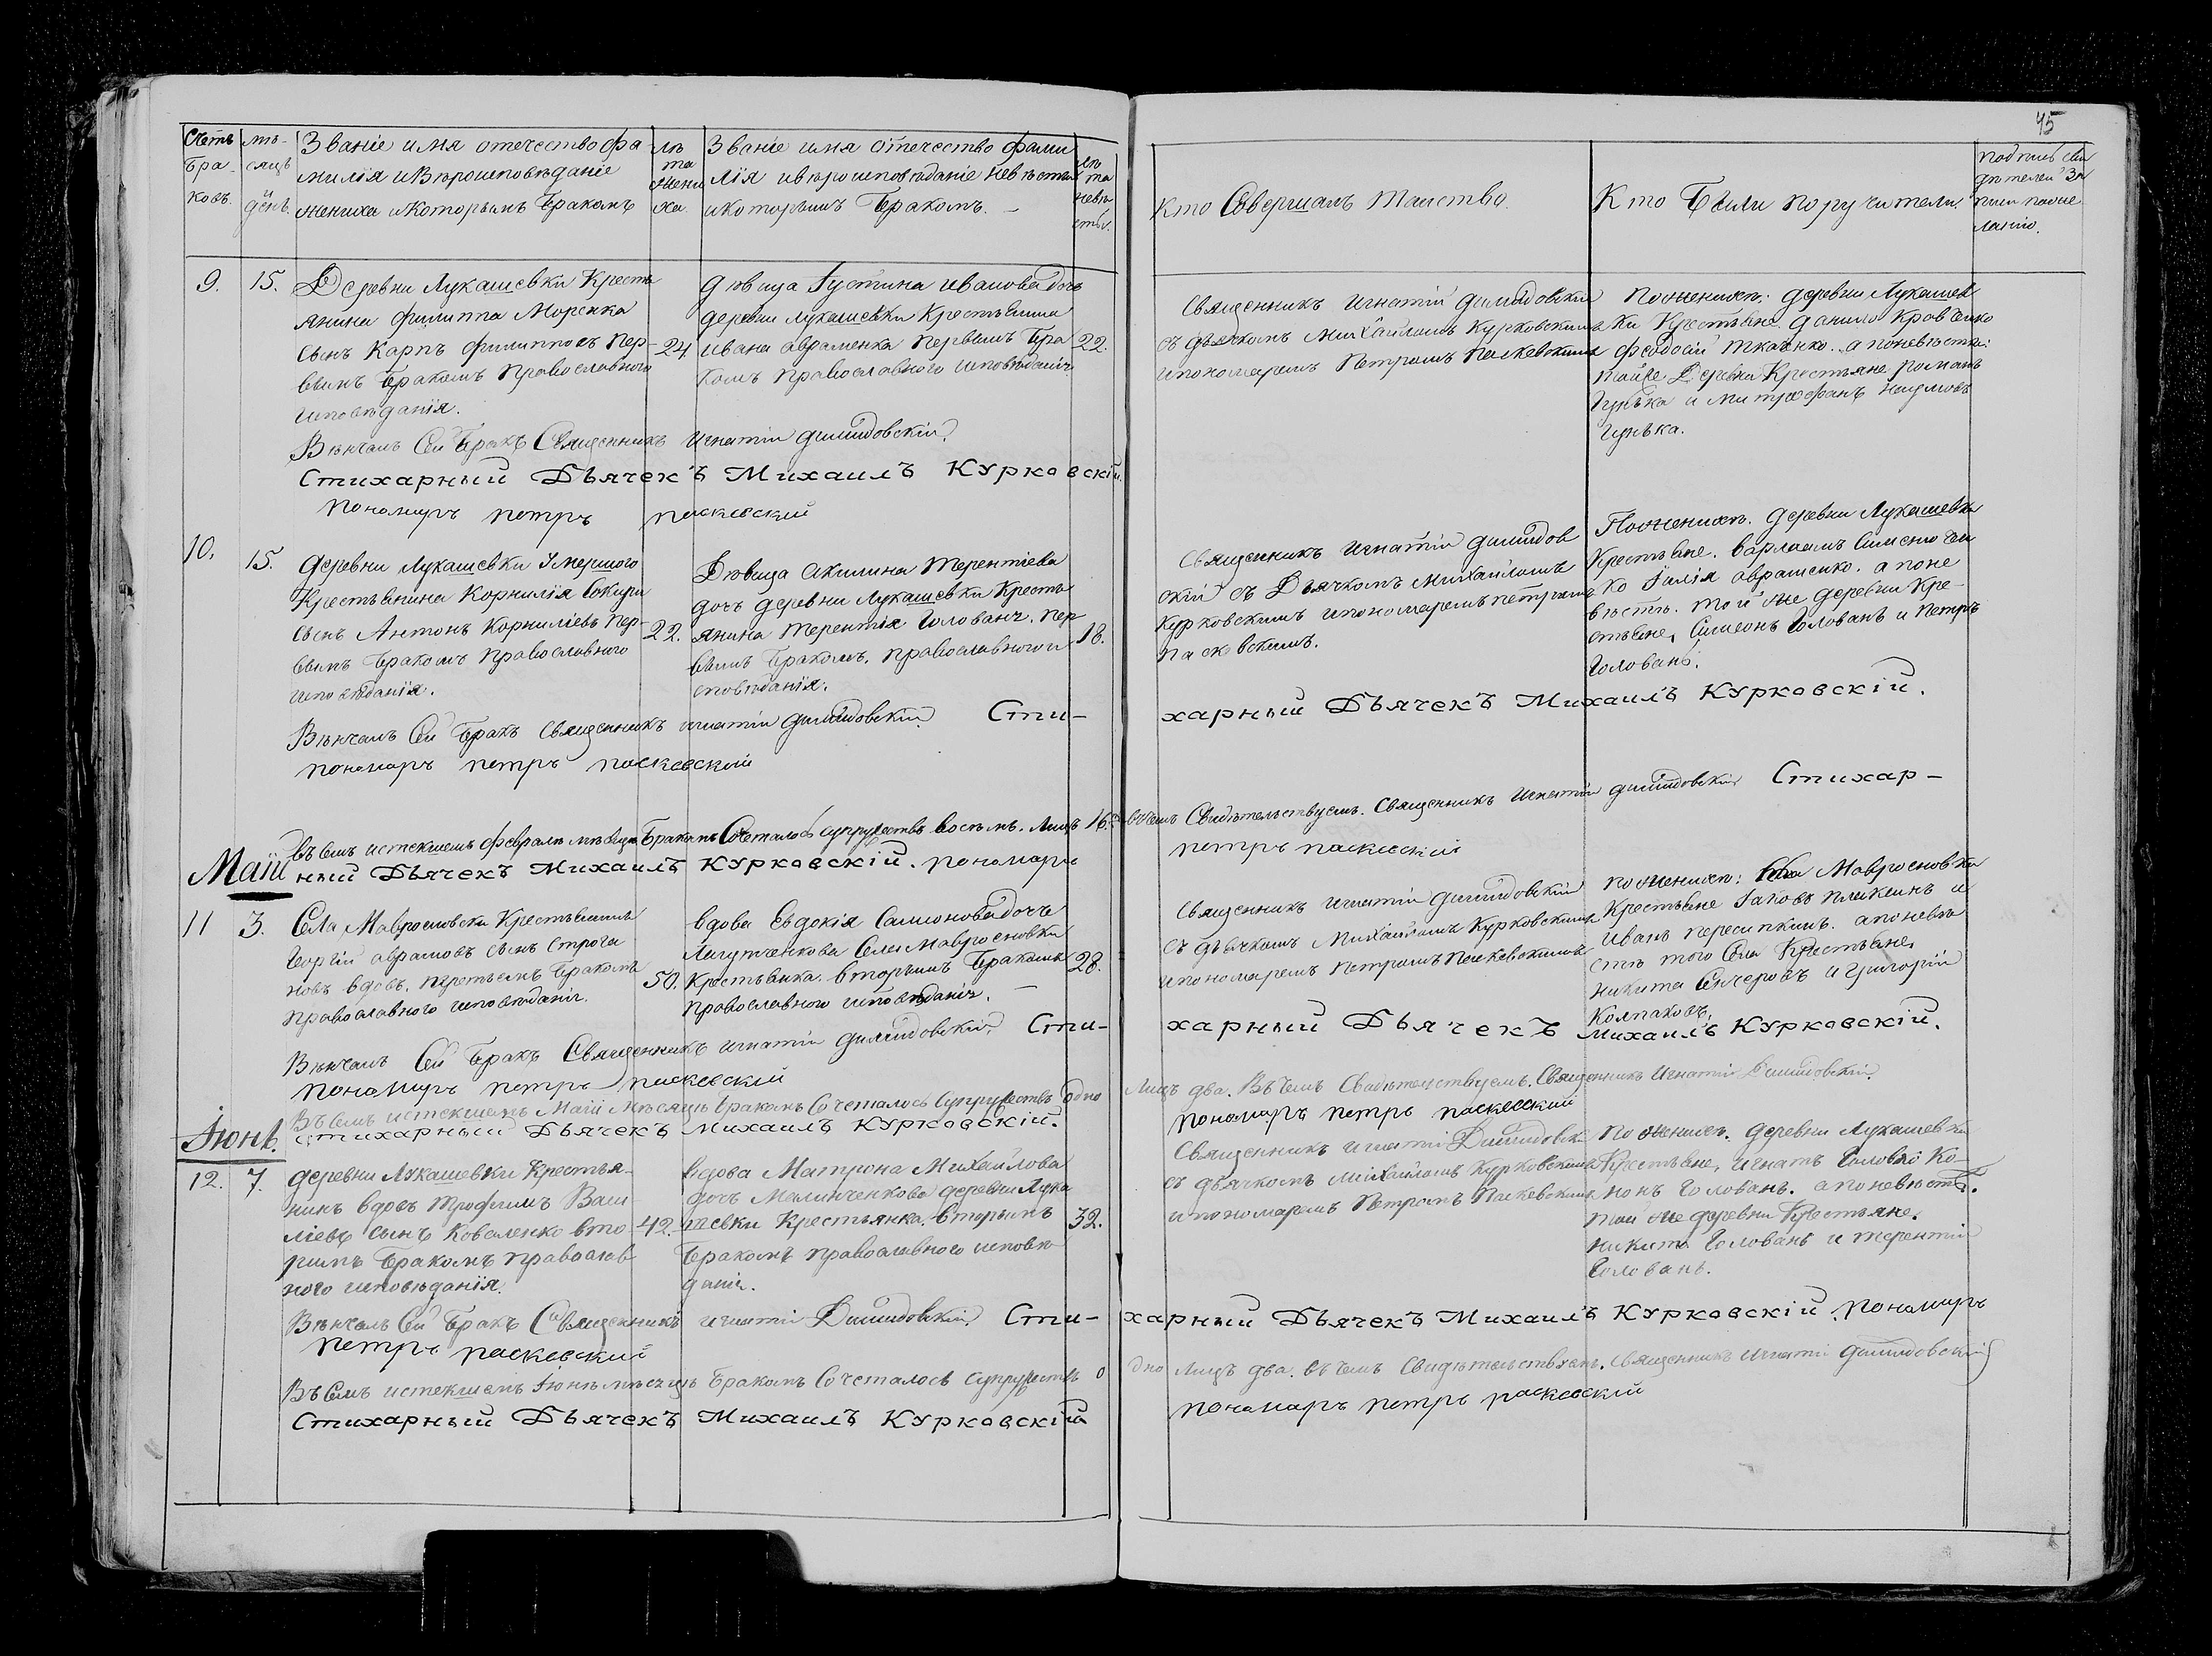 45
Счетъ Бра- ковъ.
мѣ- сяцъ и день.
Званіе имя отечество фа
милія и Вѣроисповѣданіе
жениха и Которымъ Бракомъ
лѣ та жени ха.
Званіе имя отечество фами
лія и вѣроисповѣданіе невѣсты
и которымъ Бракомъ. —
лѣ та невѣ сты.
Кто Совершалъ Таинство.
Кто Были поручители.
подпись сви
дѣтелей За
писи по же
ланію.
9.
15.
Деревни Лукашевки Кресть
янина Филиппа Моренка
сынъ Карпъ Филипповъ пер-
вымъ Бракомъ православного
исповѣданія.
24
дѣвица Іустина Иванова дочь
деревни Лукашевки Крестьянина
Ивана Авраменка первымъ Бра
комъ православного исповѣданія.
22.
Священникъ Игнатій
съ дьячкомъ Михаиломъ Курковскимъ
и пономаремъ Петромъ Паскевскимъ
По женихѣ: деревни Лукашев
ки Крестьяне Данило Кравченко
Феодосій Ткаченко. а по невѣстѣ:
той же Деревни Крестьяне Романъ
и Митрофанъ Наумовъ
Вѣнчалъ Сей Бракъ Священникъ Игнатій
Стихарный Дьячекъ Михаилъ Курковскій.
пономарь петръ паскевский
10.
15.
деревни Лукашевки Умершого
Крестьянина Корнилія Сокуры
сынъ Антонъ Корниліевъ пер-
вымъ Бракомъ православного
исповѣданія.
22.
Дѣвица Акилина Терентіева
дочь деревни Лукашевки Кресть
янина Терентія Голованя. пер
вымъ Бракомъ. православного и
сповѣданія.
18.
Священникъ Игнатій
скій съ Дьячкомъ Михаиломъ
Курковскимъ и пономаремъ петромъ
Паскевскимъ.
По женихѣ. деревни Лукашевки
Крестьяне. Варлаамъ Симоненчен
ко Іулія Авраменко. а по не
вѣстѣ. той же деревни Кре-
стьяне, Симеонъ Голованъ и Петръ
Голованъ.
Вѣнчалъ Сей Бракъ Священникъ Игнатій Сти-
харный Дьячекъ Михаилъ Курковскій.
пономарь петръ паскевский
Въ семъ истекшемъ Февралѣ мѣсяцѣ Бракомъ Сочеталось супружествъ восемъ. Лицъ 16. въ чемъ Свидѣтельствуемъ. Священникъ Игнатій Стихар-
ный Дьячекъ Михаилъ Курковскій. пономарь петръ паскевский
Маій
11
3.
Села Мавроеновки Крестьянинъ
Георгій Авраамовъ сынъ Строга
новъ вдовъ. третьимъ Бракомъ
православного исповѣданія.
50.
вдова Евдокія Самсонова дочь
Села Мавроеновки
Крестьянка. вторымъ Бракомъ
православного исповѣданія. —
28.
Священникъ Игнатій
съ дьячкомъ Михаиломъ Курковскимъ
и пономаремъ Петромъ Паскевскимъ
по женихѣ: Села Мавроеновки
Крестьяне Іаковъ Плаксинъ и
Иванъ Пересыпкинъ. а по невѣ
стѣ того Села Крестьяне.
Никита и Григорій
Колпаковъ.
Вѣнчалъ Сей Бракъ Священникъ Игнатій Сти-
харный Дьячекъ Михаилъ Курковскій.
пономарь петръ паскевский
Въ семъ истекшемъ Маіи мѣсяцѣ Бракомъ Сочеталось Супружество одно Лицъ два. Въ чемъ Свидѣтельствуемъ. Священникъ Игнатій
Стихарный Дьячекъ Михаилъ Курковскій. пономарь петръ паскевский
Іюнь.
12.
7.
деревни Лукашевки Крестья-
нинъ вдовъ Трофимъ Васи
ліевъ сынъ Коваленко вто-
рымъ Бракомъ православ
ного исповѣданія.
42.
Вдова Матрона Михайлова
дочь Малинченкова деревни Лука
шевки Крестьянка. вторымъ
Бракомъ православного исповѣ-
данія.
32.
Священникъ Игнатій
съ дьячкомъ Михаиломъ Курковскимъ
и пономаремъ Петромъ Паскевскимъ
по женихѣ. деревни Лукашевки
Крестьяне, Игнатъ Ко-
нонъ Голованъ. а по невѣстѣ.
той же деревни Крестьяне.
Никита Голованъ и Терентій
Голованъ.
Вѣнчалъ Сей Бракъ Священникъ Игнатій Сти-
харный Дьячекъ Михаилъ Курковскій. пономарь
петръ паскевский
Въ семъ истекшемъ Іюнѣ мѣсяцѣ Бракомъ Сочеталось супружество о дно Лицъ два. въ чемъ Свидѣтельствуемъ. Священникъ Игнатій
Стихарный Дьячекъ Михаилъ Курковскій
пономарь петръ паскевский